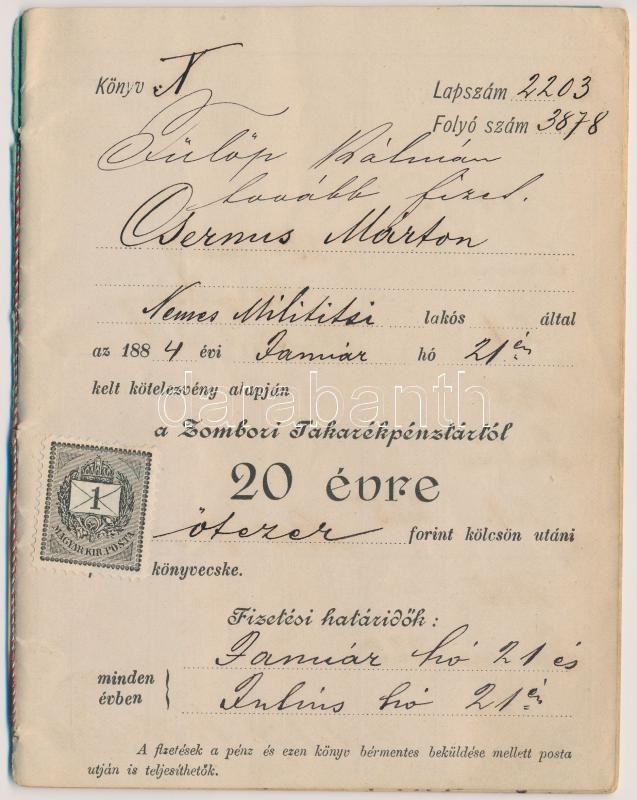 Könyv N
Lapszám 2203
Folyó szám 3878
Fülöp Kálmán
tovább fizet.
Csernus Márton
Nemes Milititsi lakós által
az 1884 évi Január hó 21én
kelt kötelezvény alapján
darabanth
a Zombori Takarékpénztártól
20 évre
1
MAGYAR KIR. POSTA
ötezer forint kölcsön utáni
könyvecske.
Fizetési határidők:
minden évben { Január hó 21 és
Julius hó 21én
A fizetések a pénz és ezen könyv bérmentes beküldése mellett posta
utján is teljesíthetők.